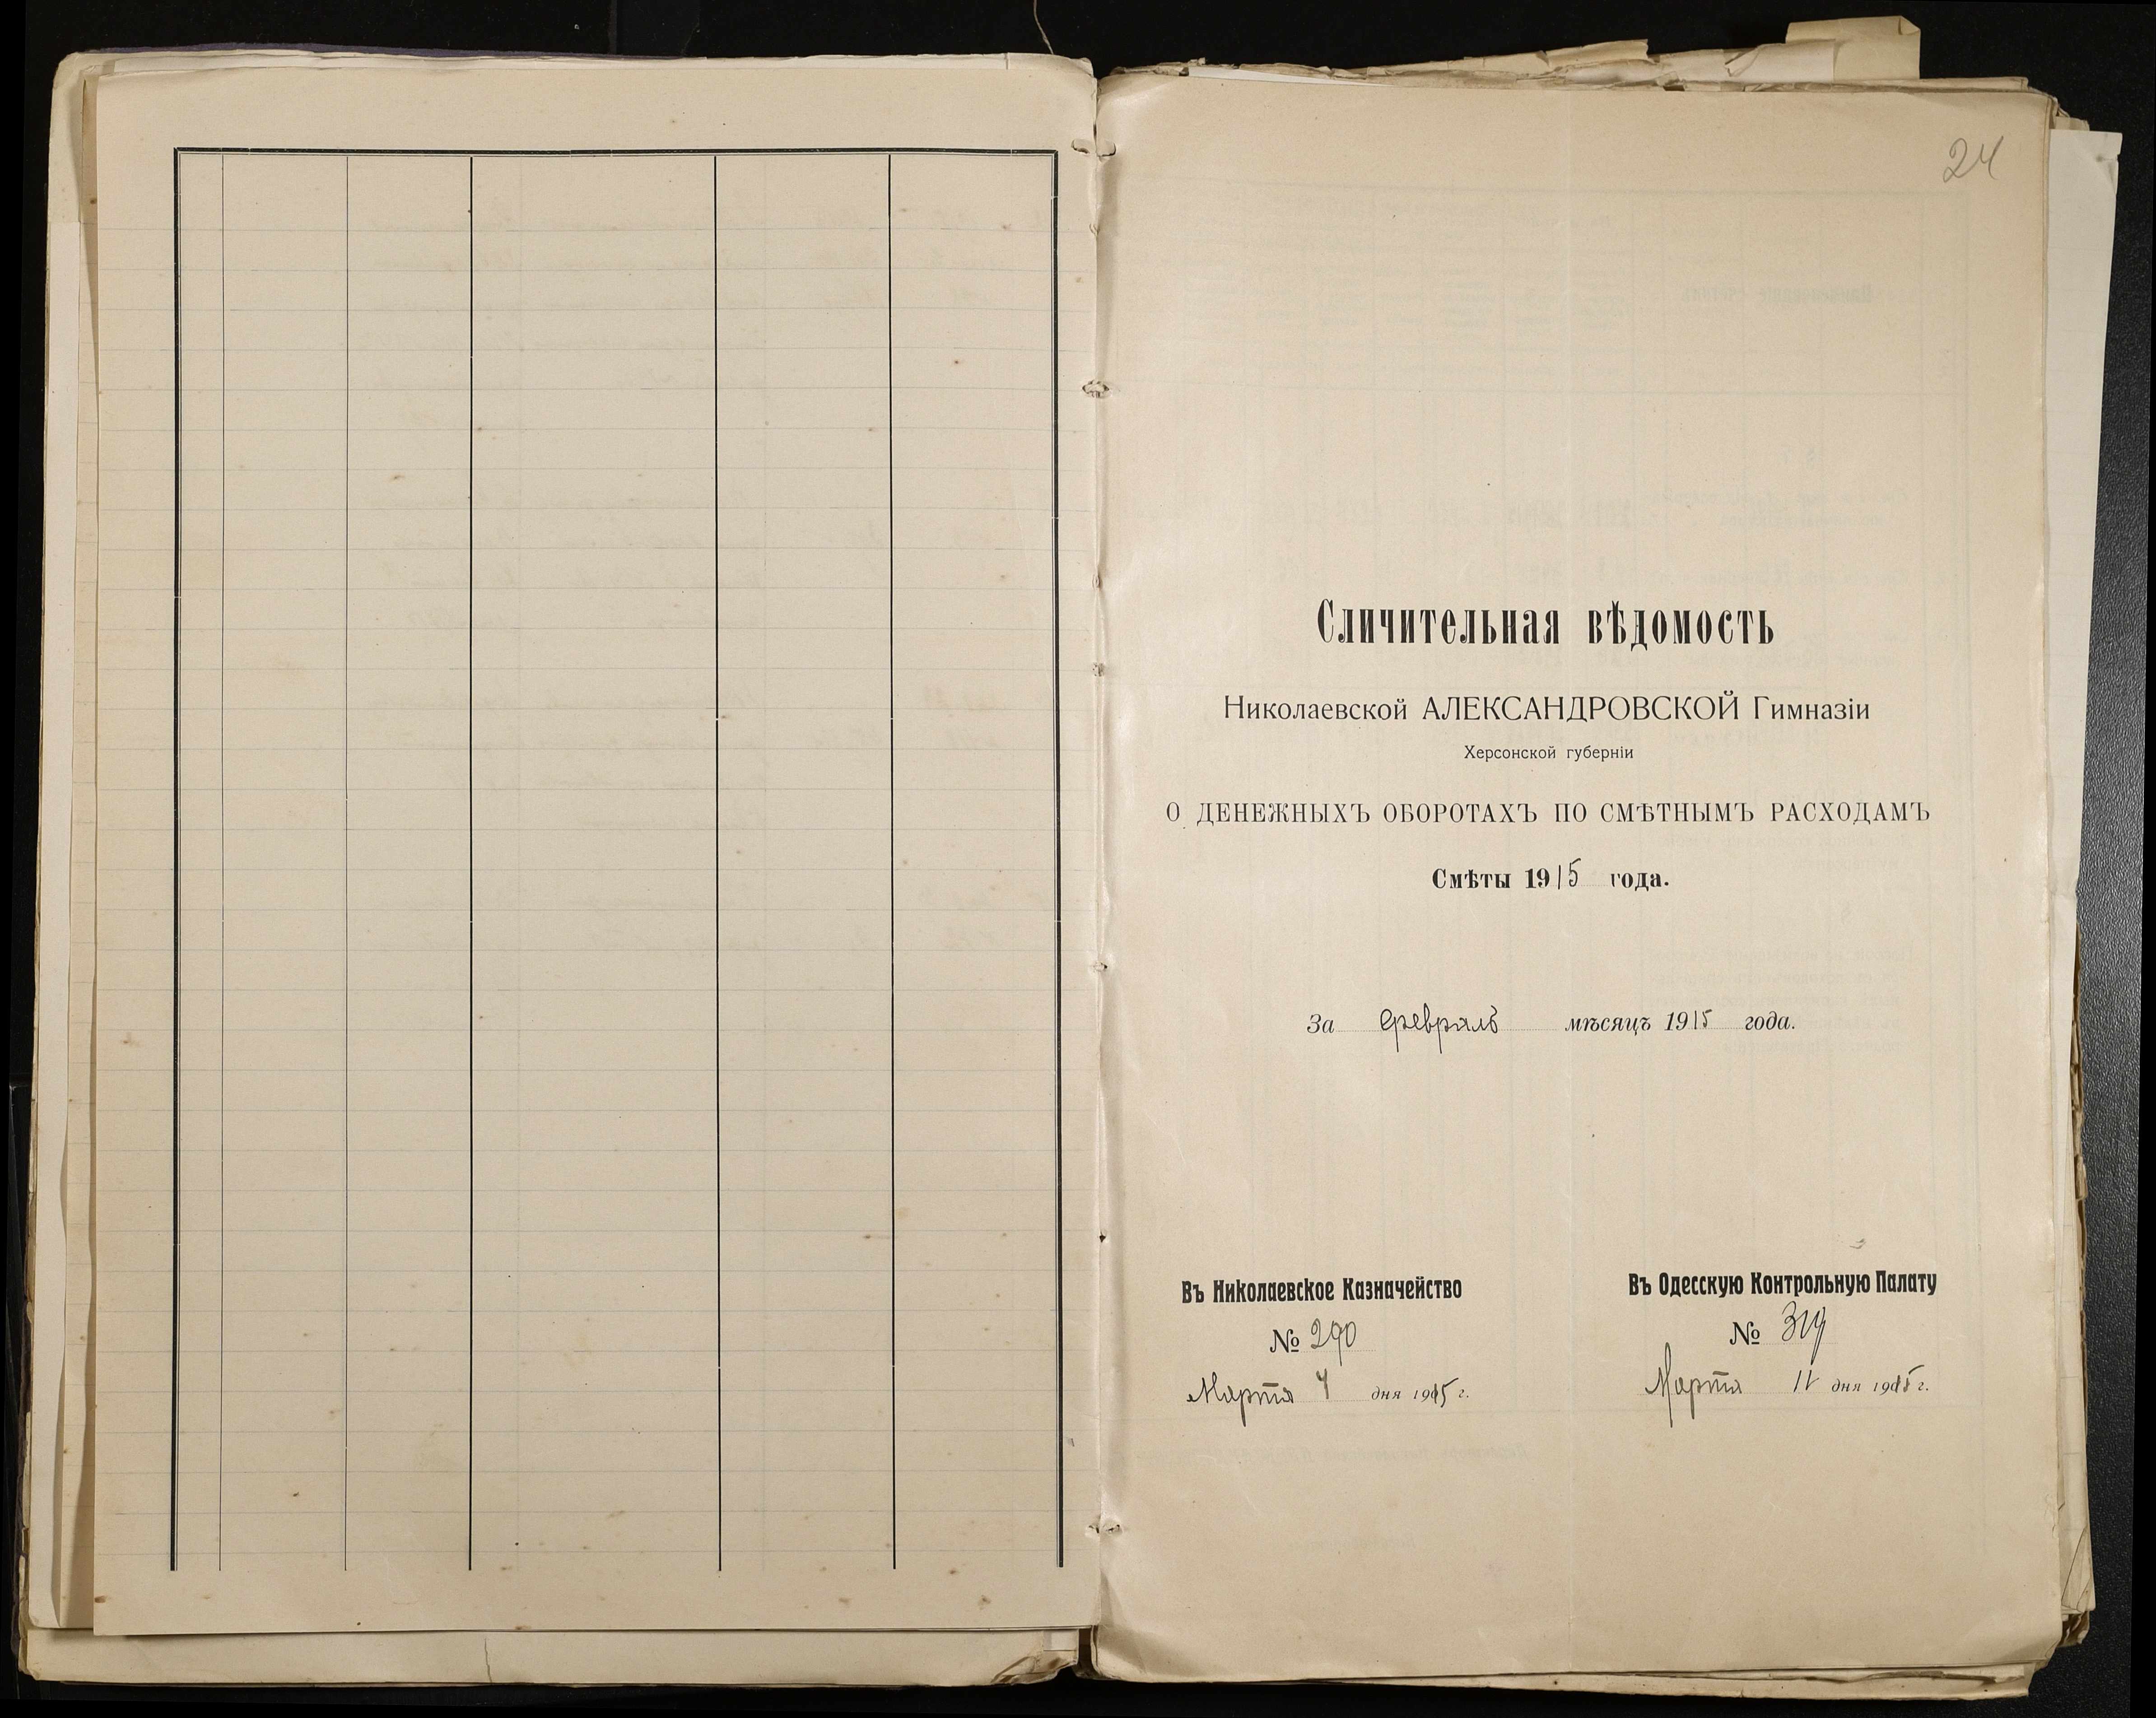 24
Сличительная вѣдомость
Николаевской АЛЕКСАНДРОВСКОЙ Гимназіи
Херсонской губерніи
О ДЕНЕЖНЫХЪ ОБОРОТАХЪ ПО СМѢТНЫМЪ РАСХОДАМЪ
Смѣты 1915 года.
За февраль мѣсяцъ 1915 года.
Въ Николаевское Казначейство
№ 290
Марта 4 дня 1915 г.
Въ Одесскую Контрольную Палату
№ 319
Марта 11 дня 1915 г.